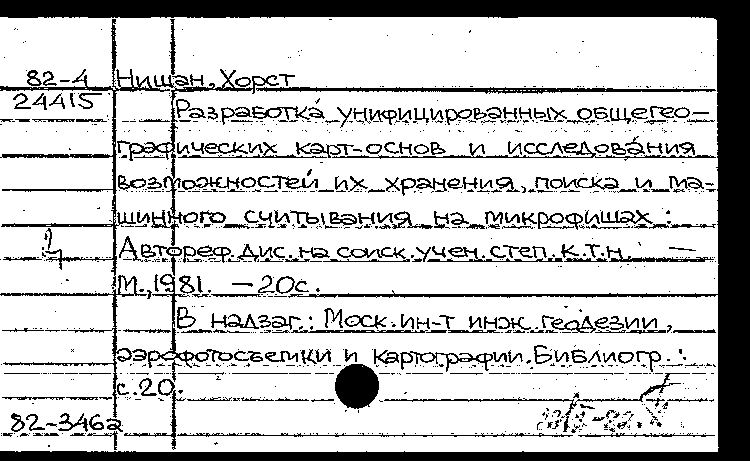 82-4 Нишан, Хорст
24415 Разработка унифицированных общегео-
графических карт-основ и исследования
возможностей их хранения, поиска и ма-
шинного считывания на микрофишах :
Автореф. дис. на соиск. учен. степ. к.т.н. —
М., 1981. — 20с.
В надзаг.: Моск. ин-т инж. геодезии,
аэрофотосъемки и картографии. Библиогр. :
с. 20.
82-346а